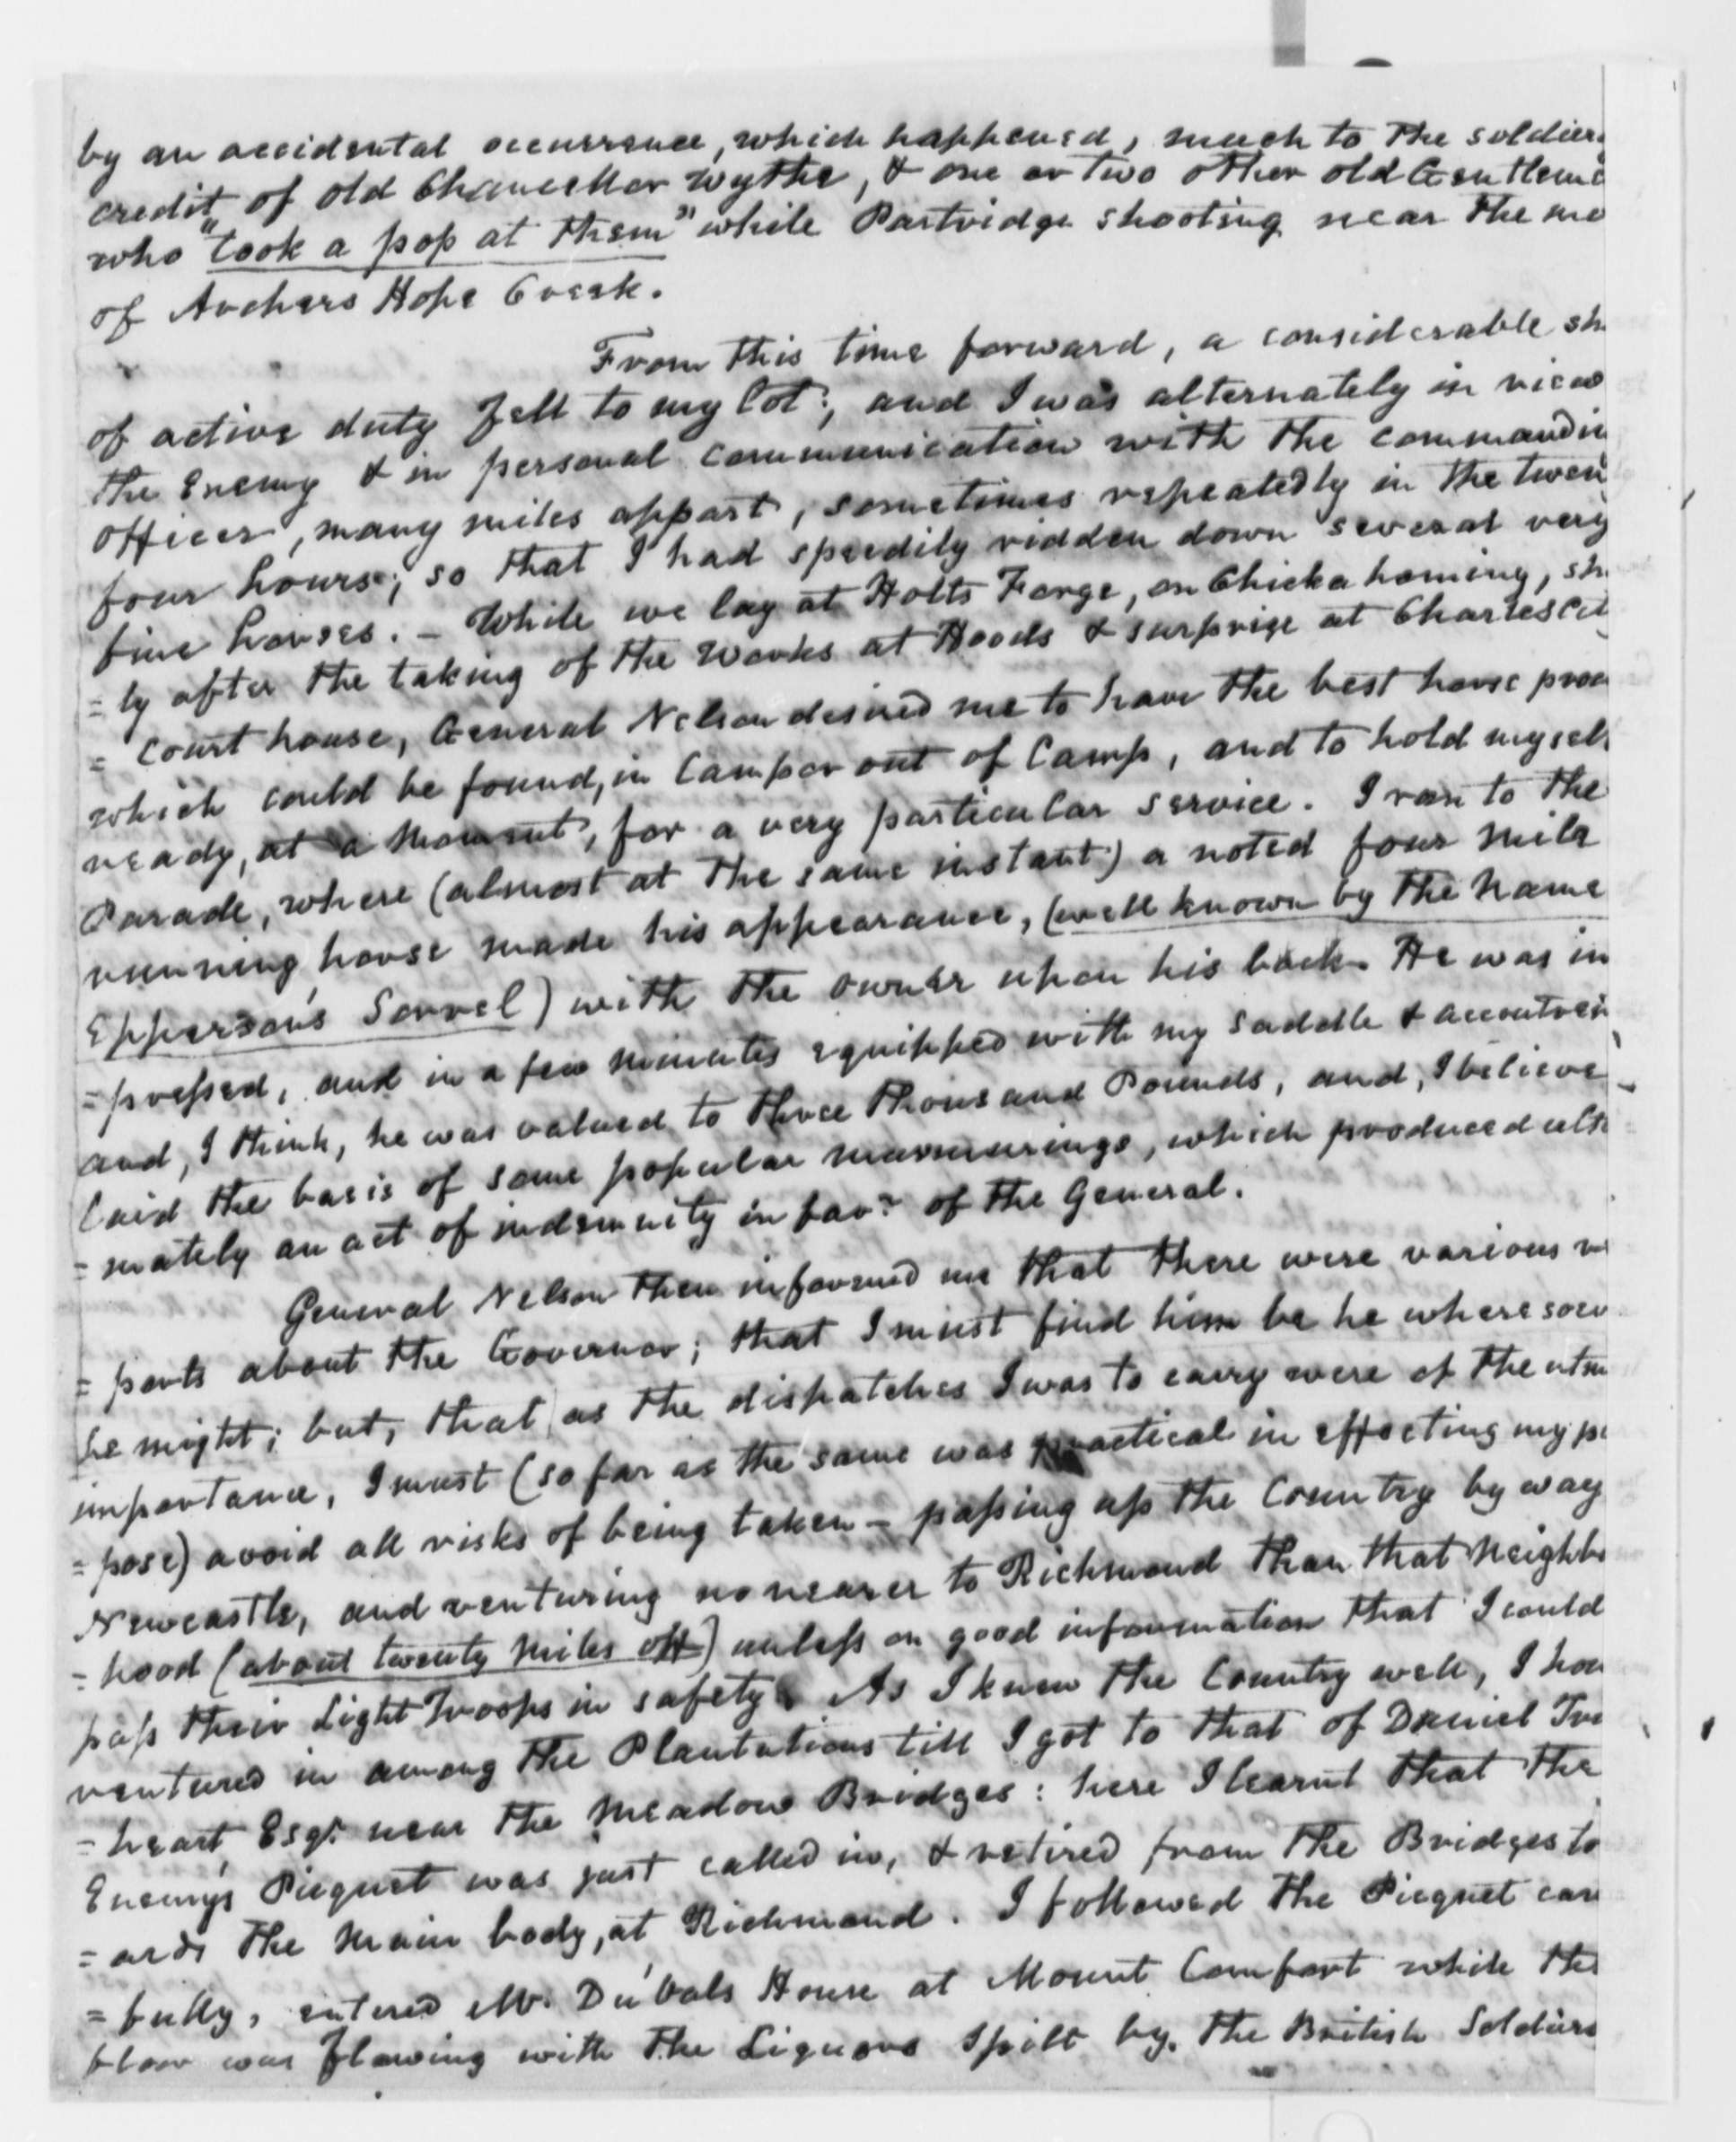 by an accidental occurrence, which happened, much to the soldier
credit of old Chancellor Wythe, & one or two other old Gentleme
who "took a pop at them" while Partridge shooting near the mo
of Archers Hope Creek.
From this time forward, a considerable sh
of active duty fell to my lot; and I was alternately in view
the Enemy & in personal communication with the commandin
officer, many miles appart, sometimes repeatedly in the twen
four hours; so that I had speedily ridden down several very
fine horses. - While we lay at Holts Forge, on Chickahominy, sh
= ly after the taking of the works at Hoods & surprize at Charles Cit
= Court house, General Nelson desired me to have the best horse proc
which could be found, in Camp or out of Camp, and to hold mysel
ready, at a moment, for a very particular service. I ran to the
Parade, where (almost at the same instant) a noted four mile
running horse made his appearance, (well known by the name
Epperson's Sorrel) with the owner upon his back. He was im
= pressed, and in a few minutes equipped with my saddle & accoutrem
and, I think, he was valued to three thousand Pounds, and, I believe
laid the basis of some popular murmurings, which produced ulti
= mately an act of indemnity in favr. of the General.
General Nelson then informed me that there were various re
= ports about the Governor; that I must find him be he wheresoev
he might; but, that as the dispatches I was to carry were of the utm
importance, I must (so far as the same was practical in effecting my pu
= pose) avoid all risks of being taken - passing up the Country by way
Newcastle, and venturing no nearer to Richmond than that neighbo
= hood (about twenty miles off) unless on good information that I could
pass their Light Troops in safety. As I knew the Country well, I how
ventured in among the Plantations till I got to that of Daniel Tru
= heart, Esqr. near the Meadow Bridges: here I learnt that the
Enemys Picquet was just called in, & retired from the Bridges to
= ards the main body, at Richmond. I followed the Picquet car
= fully, entered Mr. DuVals House at Mount Comfort while the
floor was flowing with the Liquors spilt by the British Soldiers